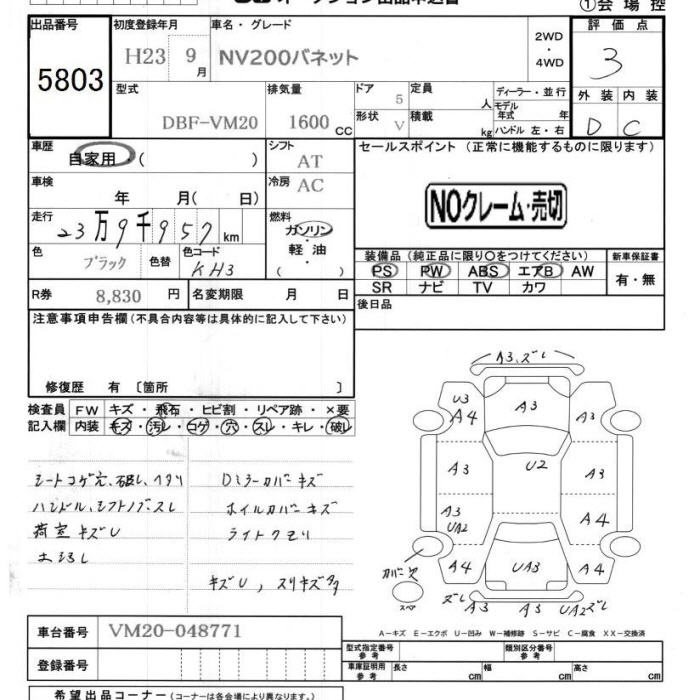 オークション出品申込書
①会場控
出品番号
5803
初度登録年月
H23 9月
車名・グレード
NV200バネット
2WD
・
4WD
評価点
3
型式
DBF-VM20
排気量
1600 CC
ドア 5
形状 V
定員 人
積載 kg
ディーラー・並行
モデル年式 年
ハンドル 左・右
外装 内装
D C
車歴
自家用・( )
シフト
AT
車検
年 月( 日)
冷房
AC
セールスポイント (正常に機能するものに限ります)
NOクレーム・売切
走行
23万9千957km
燃料
ガソリン
・
軽油
・
( )
色
ブラック
色替
色コード
KH3
装備品 (純正品に限り〇をつけてください)
PS PW ABS エアB AW
SR ナビ TV カワ
新車保証書
有・無
R券 8,830 円
名変期限 月 日
後日品
注意事項申告欄(不具合内容等は具体的に記入して下さい)
修復歴 有〔箇所 〕
検査員記入欄
FW キズ・飛石・ヒビ割・リペア跡・×要
内装 キズ・汚レ・コゲ・穴・スレ・キレ・破レ
シートコゲ穴、破レ、ヘタリ
ハンドル、シフトノブスレ
荷室キズU
Dミラーカバーキズ
ホイルカバーキズ
ライトクモリ
キズU, スリキズ多
A3,ズレ
U3
A4
A3
A3
A3
U2
A3
A3
UA2
A4
A4
UA3
A4
カバー欠
スペア
ズレ
A3
A3
UA2ズレ
A-キズ E-エクボ U-凹み W-補修跡 S-サビ C-腐食 XX-交換済
車台番号 VM20-048771
登録番号
型式指定番号 参考
類別区分番号 参考
車庫証明用 参考
長さ cm
幅 cm
高さ cm
希望出品コーナー(コーナーは各会場により異なります。)